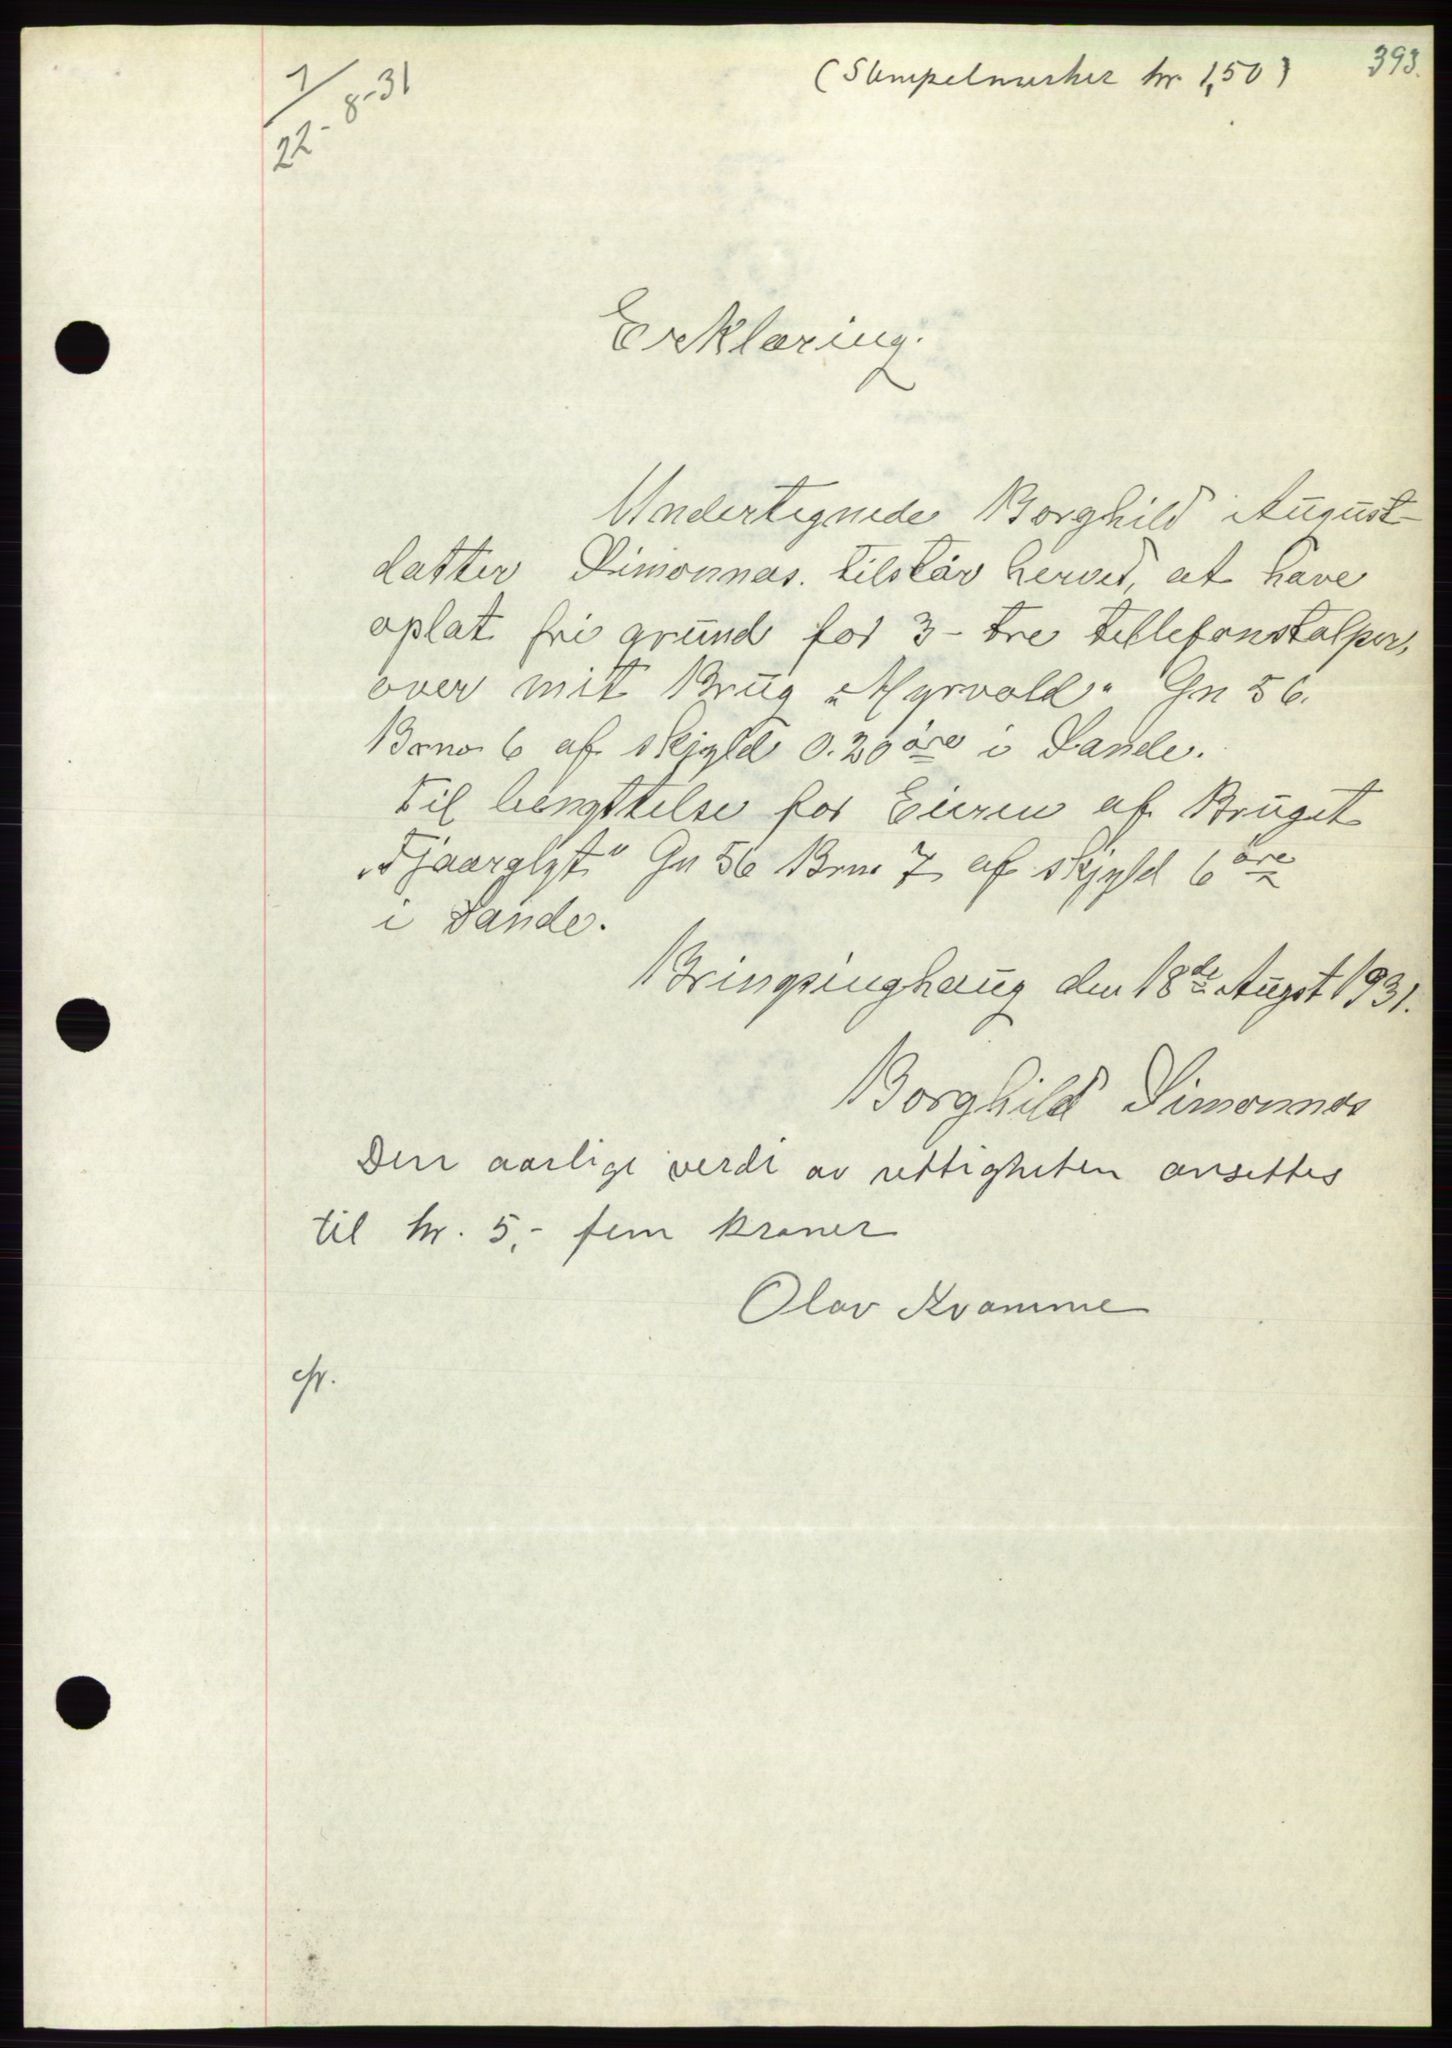 393.
(Stempelmerker kr. 1,50)
1/22-8-31
Erklæring.
Undertegnede Borghild August-
datter Simonnes. tilstår herved, at have
oplat fri grund for 3- tre tellefonstolper,
over mit Brug „Myrvold" Gn 56.
Brno 6 af skjyld 0.20 øre i Sande.
til benyttelse for Eieren af Bruget
„Fjaarglyt" Gn 56 Brno 7 af skjyld 6 øre
i Sande.
Bringsinghaug den 18de August 1931.
Borghild Simonnes
Den aarlige verdi av rettigheten ansettes
til kr. 5,- fem kroner
Olav Kvamme